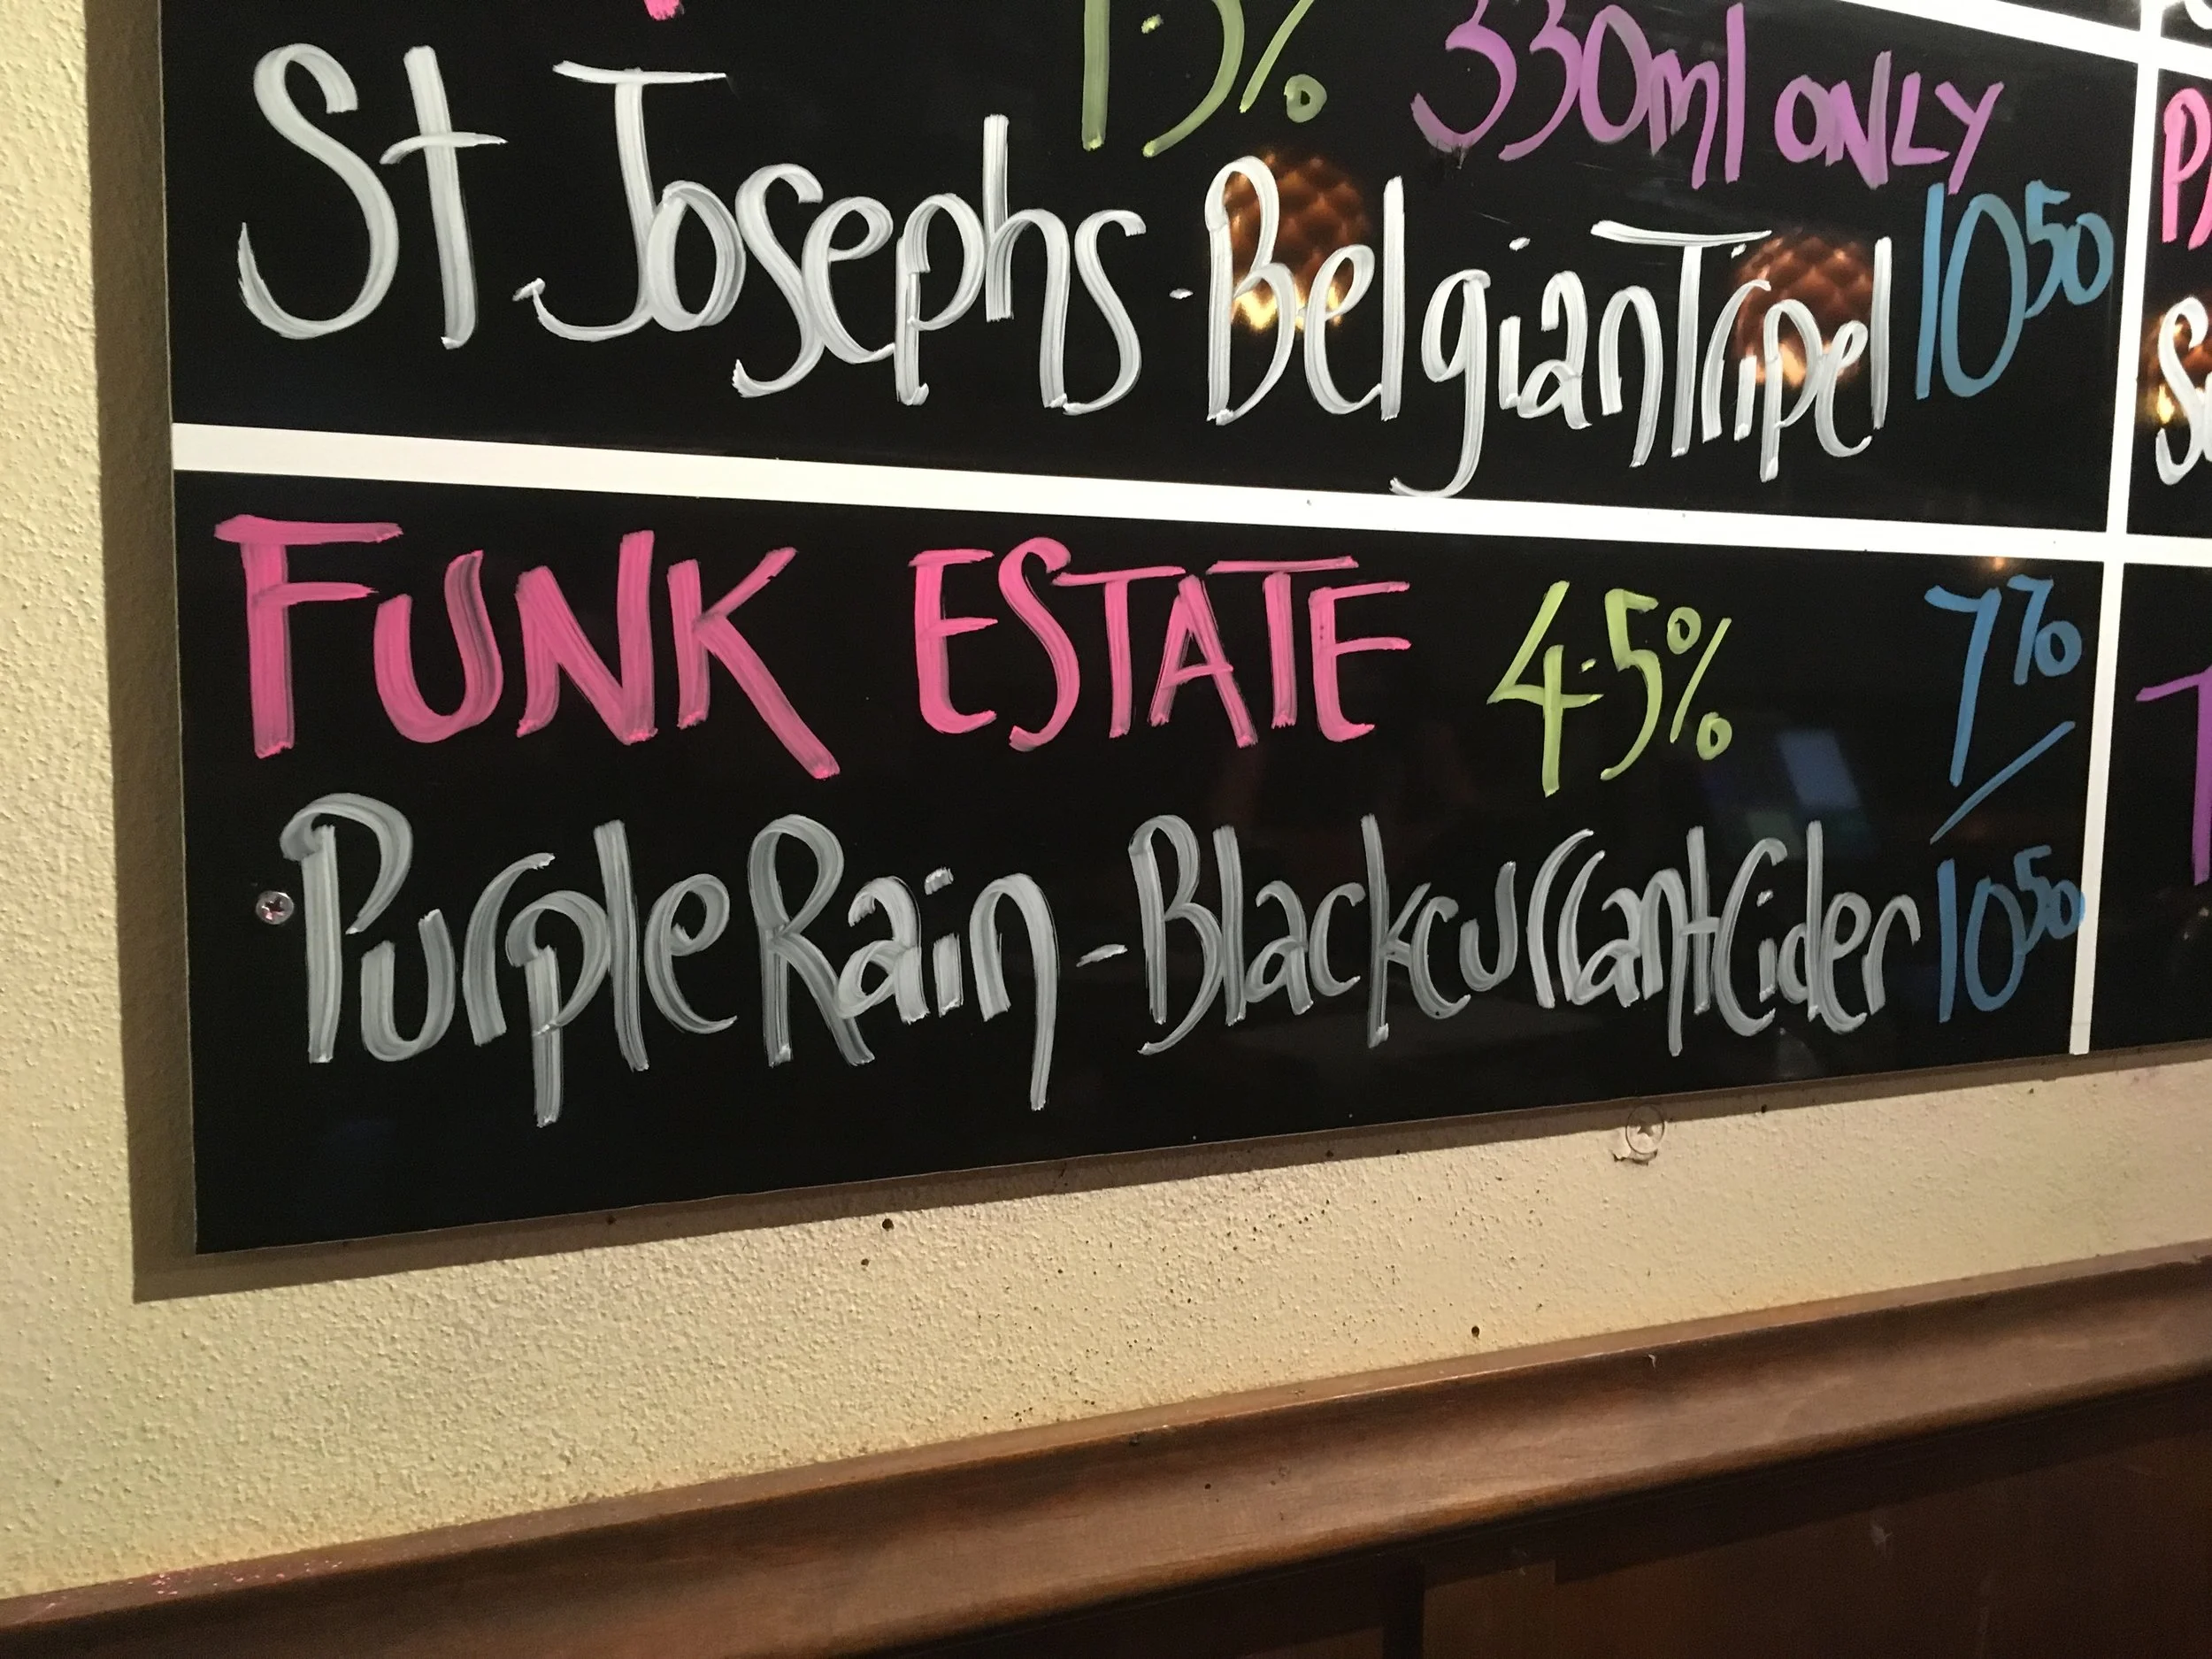 330ml ONLY
St Josephs - Belgian Tripel 10 50
FUNK ESTATE 4.5% 7 70
Purple Rain - Blackcurrant Cider 10 50